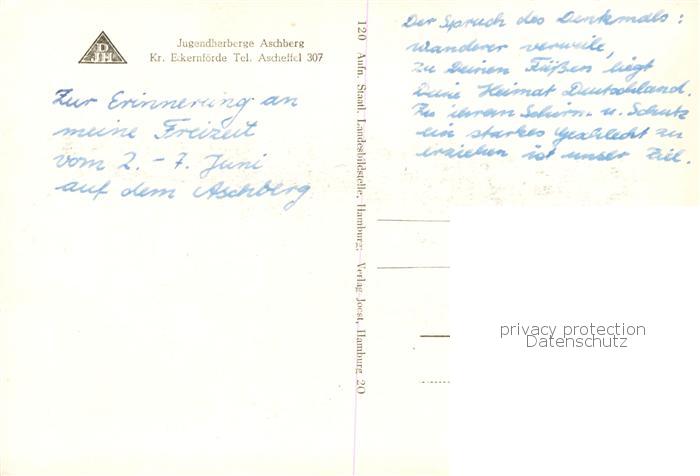 DJH
Jugendherberge Aschberg
Kr. Eckernförde Tel. Ascheffel 307
Zur Erinnerung an
meine Freizeit
vom 2. - 7. Juni
auf dem Aschberg
120 Aufn. Staatl. Landesbildstelle, Hamburg; Verlag Joost, Hamburg 20
Der Spruch des Denkmals:
Wanderer verweile,
zu Deinen Füßen liegt
Deine Heimat Deutschland.
Zu ihrem Schirm u. Schutz
ein starkes Geschlecht zu
erziehen ist unser Ziel.
privacy protection
Datenschutz